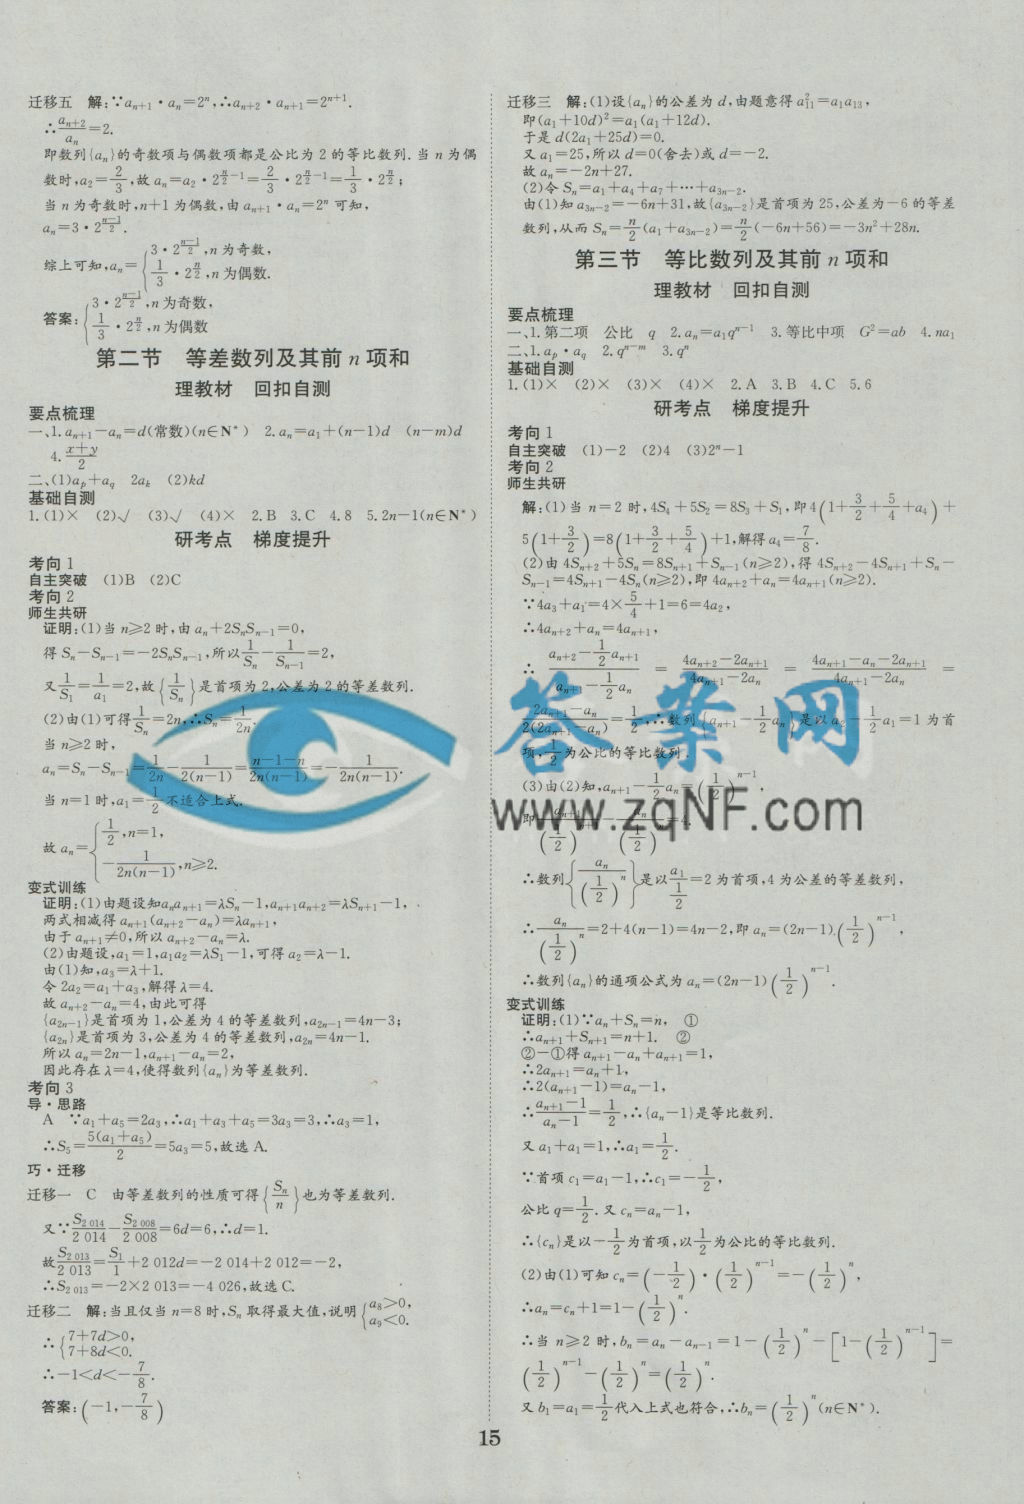 迁移五 解:∵aₙ₊₁·aₙ=2ⁿ,∴aₙ₊₂·aₙ₊₁=2ⁿ⁺¹.
∴aₙ₊₂/aₙ=2.
即数列{aₙ}的奇数项与偶数项都是公比为2的等比数列.当n为偶
数时,a₂=2/3,故aₙ=a₂·2^(n/2-1)=2/3·2^(n/2-1)=1/3·2^(n/2);
当n为奇数时,n+1为偶数,由aₙ₊₁·aₙ=2ⁿ可知,
aₙ=3·2^((n-1)/2).
综上可知,aₙ={3·2^((n-1)/2),n为奇数,
1/3·2^(n/2),n为偶数.
答案:{3·2^((n-1)/2),n为奇数,
1/3·2^(n/2),n为偶数
第二节 等差数列及其前n项和
理教材 回扣自测
要点梳理
一、1.aₙ₊₁-aₙ=d(常数)(n∈N*) 2.aₙ=a₁+(n-1)d (n-m)d
4.(x+y)/2
二、(1)aₚ+a_q 2aₖ (2)kd
基础自测
1.(1)× (2)√ (3)√ (4)× 2.B 3.C 4.8 5.2n-1(n∈N*)
研考点 梯度提升
考向1
自主突破 (1)B (2)C
考向2
师生共研
证明:(1)当n≥2时,由aₙ+2SₙSₙ₋₁=0,
得Sₙ-Sₙ₋₁=-2SₙSₙ₋₁,所以1/Sₙ-1/Sₙ₋₁=2,
又1/S₁=1/a₁=2,故{1/Sₙ}是首项为2,公差为2的等差数列.
(2)由(1)可得1/Sₙ=2n,∴Sₙ=1/2n.
当n≥2时,
aₙ=Sₙ-Sₙ₋₁=1/2n-1/2(n-1)=(n-1-n)/2n(n-1)=-1/2n(n-1).
当n=1时,a₁=1/2不适合上式.
故aₙ={1/2,n=1,
-1/2n(n-1),n≥2.
变式训练
证明:(1)由题设知aₙaₙ₊₁=λSₙ-1,aₙ₊₁aₙ₊₂=λSₙ₊₁-1,
两式相减得aₙ₊₁(aₙ₊₂-aₙ)=λaₙ₊₁,
由于aₙ₊₁≠0,所以aₙ₊₂-aₙ=λ.
(2)由题设,a₁=1,a₁a₂=λS₁-1,可得a₂=λ-1.
由(1)知,a₃=λ+1.
令2a₂=a₁+a₃,解得λ=4.
故aₙ₊₂-aₙ=4,由此可得
{a₂ₙ₋₁}是首项为1,公差为4的等差数列,a₂ₙ₋₁=4n-3;
{a₂ₙ}是首项为3,公差为4的等差数列,a₂ₙ=4n-1.
所以aₙ=2n-1,aₙ₊₁-aₙ=2,
因此存在λ=4,使得数列{aₙ}为等差数列.
考向3
导·思路
A ∵a₁+a₅=2a₃,∴a₁+a₃+a₅=3a₃=3,∴a₃=1,
∴S₅=5(a₁+a₅)/2=5a₃=5,故选A.
巧·迁移
迁移一 C 由等差数列的性质可得{Sₙ/n}也为等差数列.
又∵S₂₀₁₄/2 014-S₂₀₀₈/2 008=6d=6,∴d=1.
故S₂₀₁₃/2 013=S₁/1+2 012d=-2 014+2 012=-2,
∴S₂₀₁₃=-2×2 013=-4 026,故选C.
迁移二 解:当且仅当n=8时,Sₙ取得最大值,说明{a₈>0,
a₉<0.
∴{7+7d>0,
7+8d<0.
∴-1<d<-7/8.
答案:(-1,-7/8)
迁移三 解:(1)设{aₙ}的公差为d,由题意得a₁₁²=a₁a₁₃,
即(a₁+10d)²=a₁(a₁+12d).
于是d(2a₁+25d)=0.
又a₁=25,所以d=0(舍去)或d=-2.
故aₙ=-2n+27.
(2)令Sₙ=a₁+a₄+a₇+…+a₃ₙ₋₂.
由(1)知a₃ₙ₋₂=-6n+31,故{a₃ₙ₋₂}是首项为25,公差为-6的等差
数列,从而Sₙ=n/2(a₁+a₃ₙ₋₂)=n/2(-6n+56)=-3n²+28n.
第三节 等比数列及其前n项和
理教材 回扣自测
要点梳理
一、1.第二项 公比 q 2.aₙ=a₁qⁿ⁻¹ 3.等比中项 G²=ab 4.na₁
二、1.aₚ·a_q 2.qⁿ⁻ᵐ 3.qⁿ
基础自测
1.(1)× (2)× (3)× (4)× 2.A 3.B 4.C 5.6
研考点 梯度提升
考向1
自主突破 (1)-2 (2)4 (3)2ⁿ-1
考向2
师生共研
解:(1)当n=2时,4S₄+5S₂=8S₃+S₁,即4(1+3/2+5/4+a₄)+
5(1+3/2)=8(1+3/2+5/4)+1,解得a₄=7/8.
(2)由4Sₙ₊₂+5Sₙ=8Sₙ₊₁+Sₙ₋₁(n≥2),得4Sₙ₊₂-4Sₙ₊₁+Sₙ-
Sₙ₋₁=4Sₙ₊₁-4Sₙ(n≥2),即4aₙ₊₂+aₙ=4aₙ₊₁(n≥2).
∵4a₃+a₁=4×5/4+1=6=4a₂,
∴4aₙ₊₂+aₙ=4aₙ₊₁,
∴(aₙ₊₂-1/2aₙ₊₁)/(aₙ₊₁-1/2aₙ)=(4aₙ₊₂-2aₙ₊₁)/(4aₙ₊₁-2aₙ)=(4aₙ₊₁-aₙ-2aₙ₊₁)/(4aₙ₊₁-2aₙ)=
(2aₙ₊₁-aₙ)/2(2aₙ₊₁-aₙ)=1/2,∴数列{aₙ₊₁-1/2aₙ}是以a₂-1/2a₁=1为首
项,1/2为公比的等比数列.
(3)由(2)知,aₙ₊₁-1/2aₙ=(1/2)ⁿ⁻¹,
即aₙ₊₁/(1/2)ⁿ⁺¹-aₙ/(1/2)ⁿ=4.
∴数列{aₙ/(1/2)ⁿ}是以a₁/(1/2)=2为首项,4为公差的等差数列,
∴aₙ/(1/2)ⁿ=2+4(n-1)=4n-2,即aₙ=(2n-1).(1/2)ⁿ⁻¹,
∴数列{aₙ}的通项公式为aₙ=(2n-1)(1/2)ⁿ⁻¹.
变式训练
证明:(1)∵aₙ+Sₙ=n, ①
∴aₙ₊₁+Sₙ₊₁=n+1. ②
②-①得aₙ₊₁-aₙ+aₙ₊₁=1,
∴2aₙ₊₁=aₙ+1,
∴2(aₙ₊₁-1)=aₙ-1,
∴(aₙ₊₁-1)/(aₙ-1)=1/2,∴{aₙ-1}是等比数列.
又a₁+a₁=1,∴a₁=1/2.
∵首项c₁=a₁-1,∴c₁=-1/2,
公比q=1/2.又cₙ=aₙ-1,
∴{cₙ}是以-1/2为首项,以1/2为公比的等比数列.
(2)由(1)可知cₙ=(-1/2)·(1/2)ⁿ⁻¹=-(1/2)ⁿ,
∴aₙ=cₙ+1=1-(1/2)ⁿ.
∴当n≥2时,bₙ=aₙ-aₙ₋₁=1-(1/2)ⁿ-[1-(1/2)ⁿ⁻¹]=
(1/2)ⁿ⁻¹-(1/2)ⁿ=(1/2)ⁿ.
又b₁=a₁=1/2代入上式也符合,∴bₙ=(1/2)ⁿ(n∈N*).
15
答案网
www.zqNF.com